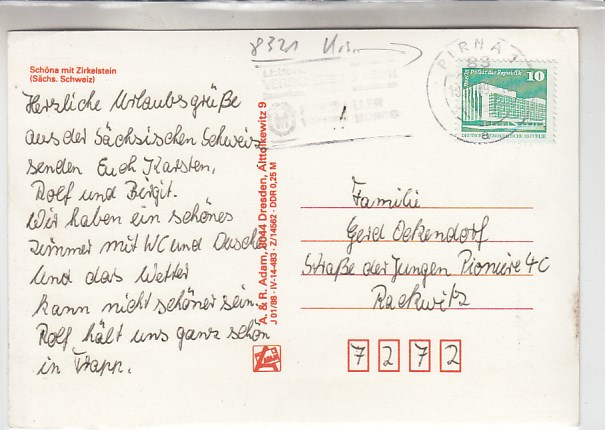 8321
PIRNA 1
83
Palast der Republik 10
Schöna mit Zirkelstein
(Sächs. Schweiz)
Herzliche Urlaubsgrüße
aus der Sächsischen Schweiz
senden Euch Karsten,
Rolf und Birgit.
Wir haben ein schönes
Zimmer mit WC und Dusche
und das Wetter
kann nicht schöner sein.
Rolf hält uns ganz schön
in Trapp.
A. & R. Adam, 8044 Dresden, Alttolkewitz 9
J 01/88 · IV-14-483 · Z/14562 · DDR 0,25 M
Familie
Gerd Oekendorf
Straße der Jungen Pioniere 4C
Rackwitz
7 2 7 2